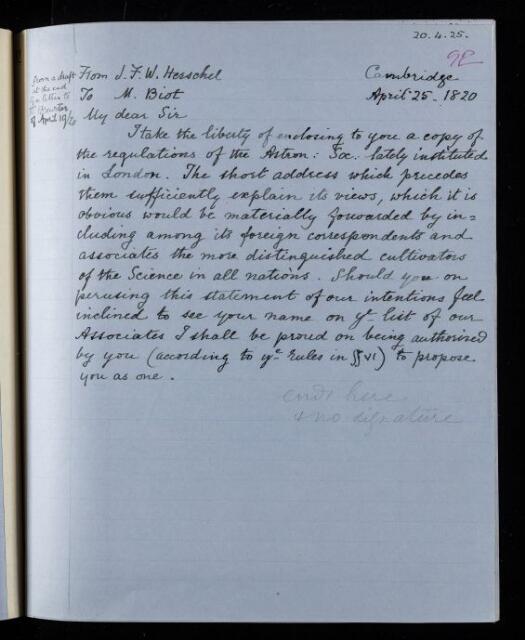 20.4.25.
From a draft
at the end
of a letter to
of April 19/20
From J.F.W. Herschel
Cambridge
To M. Biot
April 25. 1820
My dear Sir
I take the liberty of enclosing to you a copy of
the regulations of the Astron: Soc. lately instituted
in London. The short address which precedes
them sufficiently explain its views, which it is
obvious would be materially forwarded by in=
cluding among its foreign correspondents and
associates the more distinguished cultivators
of the Science in all nations. Should you on
perusing this statement of our intentions feel
inclined to see your name on yt list of our
Associates I shall be proud on being authorised
by you (according to ye rules in § VI) to propose
you as one.
ends here
& no signature